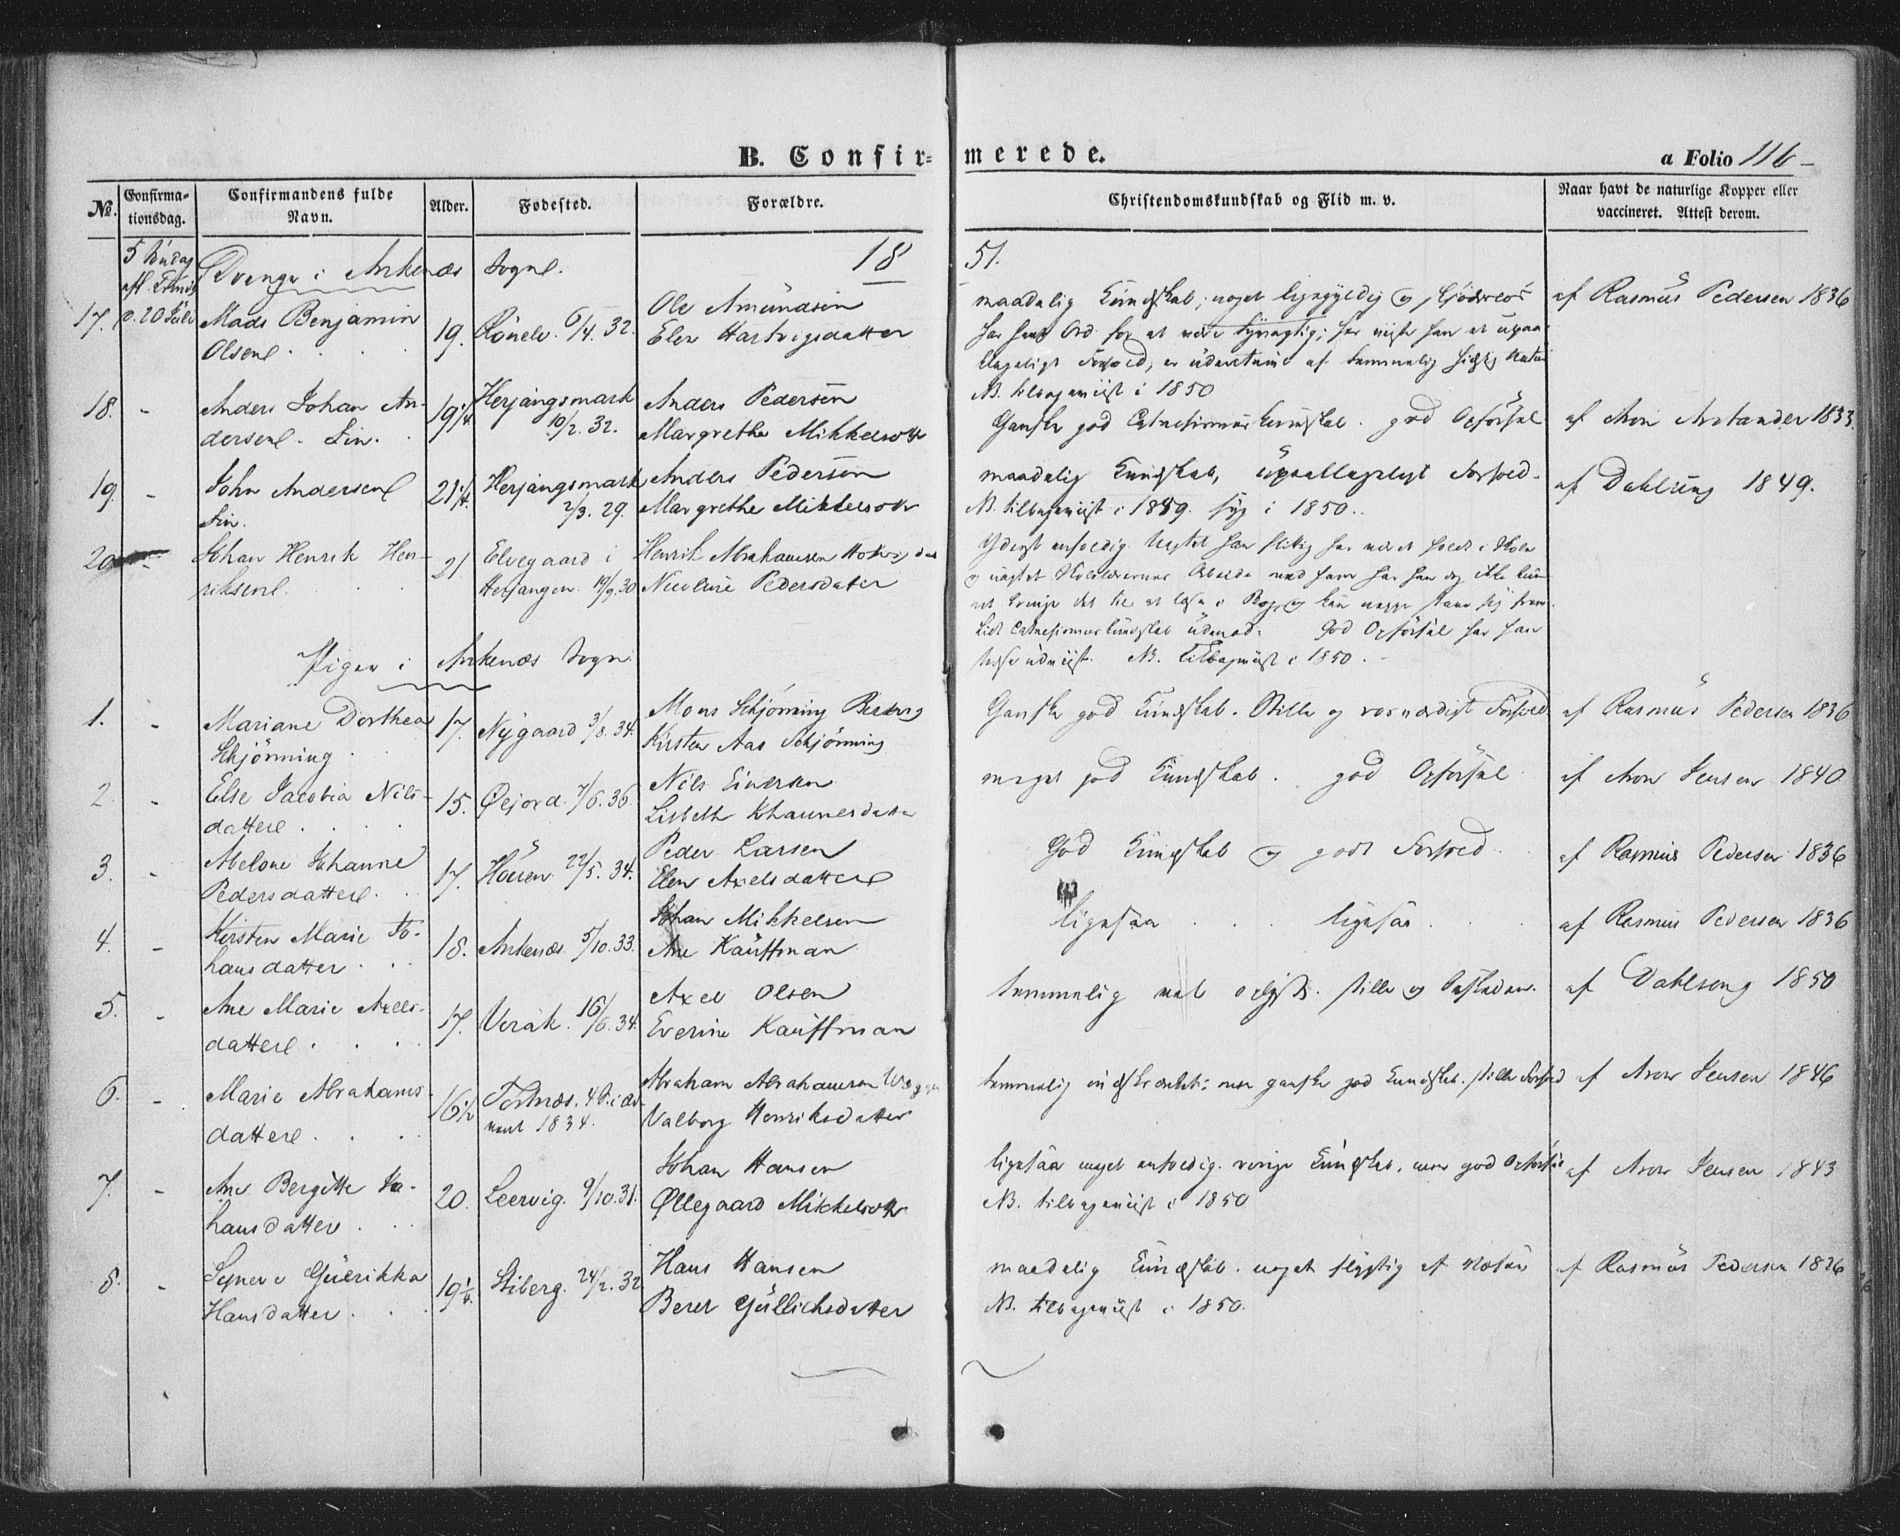 B. Confir= merede.
a Folio 116
No.
Confirma-
tionsdag.
Confirmandens fulde
Navn.
Alder.
Fødested.
Forældre.
Christendomskundskab og Flid m. v.
Naar havt de naturlige Kopper eller
vaccineret. Attest derom.
5 Søndag
eft. Trinit
d. 20 Juli
Drenge i Ankenæs Sogne.
18 51.
17. Mads Benjamin
Olsen.
19. 6/4. 32.
Ole Amundsen
Elen Hartvigsdatter
maadelig Kundskab; noget ligegyldig og
har havt Ord for at være
Forhold, er af temmelig Natur
NB. tilbageviist i 1850
af Rasmus Pedersen 1836
18. - Anders Johan An-
dersen. Fin.
19 1/4 Herjangsmark
10/2. 32.
Anders Pedersen
Margrethe Mikkelsdtr
Ganske god Catechismuskundskab. god Opførsel
af Aron 1833.
19 - John Andersen
Fin.
21 1/4. Herjangsmark
2/3. 29.
Anders Pedersen
Margrethe Mikkelsdtr
maadelig Kundskab, upaaklageligt Forhold.
NB. tilbageviist i 1849. syg i 1850.
af Dahlseng 1849.
20 Johan Henrik Hen-
riksen.
21 Elvegaard i
Herjangen. 19/9. 30
Henrik Abrahamsen
Nicoline Pedersdatter
Yderst enfoldig. Uagtet han flittig har været holdt i Skole
og uagtet Arbeide med ham har han dog ikke kun-
net bringe det til at læse i Bog og kan neppe
lidt Catechismuskundskab udenad. God Opførsel har han
udviist. NB. tilbageviist i 1850.
Piger i Ankenæs Sogn.
1. - Mariane Dorthea
Schjønning
17. Nygaard 3/8. 34.
Mons Schjønning
Kirsten Aas Schjønning
Ganske god Kundskab. Stille og Forhold
af Rasmus Pedersen 1836
2. - Else Jacobia Nils-
datter.
15. Øejord. 7/6. 36.
Nils Eiversen
Lisbeth Johannesdatter
meget god Kundskab. god Opførsel
af Aron Jensen 1840
3. - Abelone Johanne
Pedersdatter.
17. 22/5. 34.
Peder Larsen
Elen Axelsdatter
God Kundskab og godt Forhold.
af Rasmus Pedersen 1836
4. - Kirsten Marie Jo-
hansdatter
18. Ankenæs. 5/10. 33.
Johan Mikkelsen
Ane Kauffman
ligesaa ligesaa
af Rasmus Pedersen 1836
5. - Ane Marie Axels-
datter.
17. Verak. 16/6. 34.
Axel Olsen
Everine Kauffman
temmelig vel oplyst. stille og
af Dahlseng 1850
6. - Marie Abrahams-
datter.
16 1/2 Tortnæs. 4 S. i Ad-
vent 1834.
Abraham Abrahamsen
Valborg Henriksdatter
temmelig indskrænket; men ganske god Kundskab. stille Forhold
af Aron Jensen 1846
7. - Ane Bergitte Jo-
hansdatter
20. Leervig. 9/10. 31.
Johan Hansen
Øllegaard Mikkelsdtr
ligesaa noget enfoldig. ringe Kundskab, men god Opførsel
NB. tilbageviist i 1850
af Aron Jensen 1843
8. - Guerikka
Hansdatter
19 1/4. Stiberg. 24/2. 32
Hans Hansen
Beret Gullichsdatter
maadelig Kundskab. noget flygtig af Natur
NB. tilbageviist i 1850.
af Rasmus Pedersen 1836